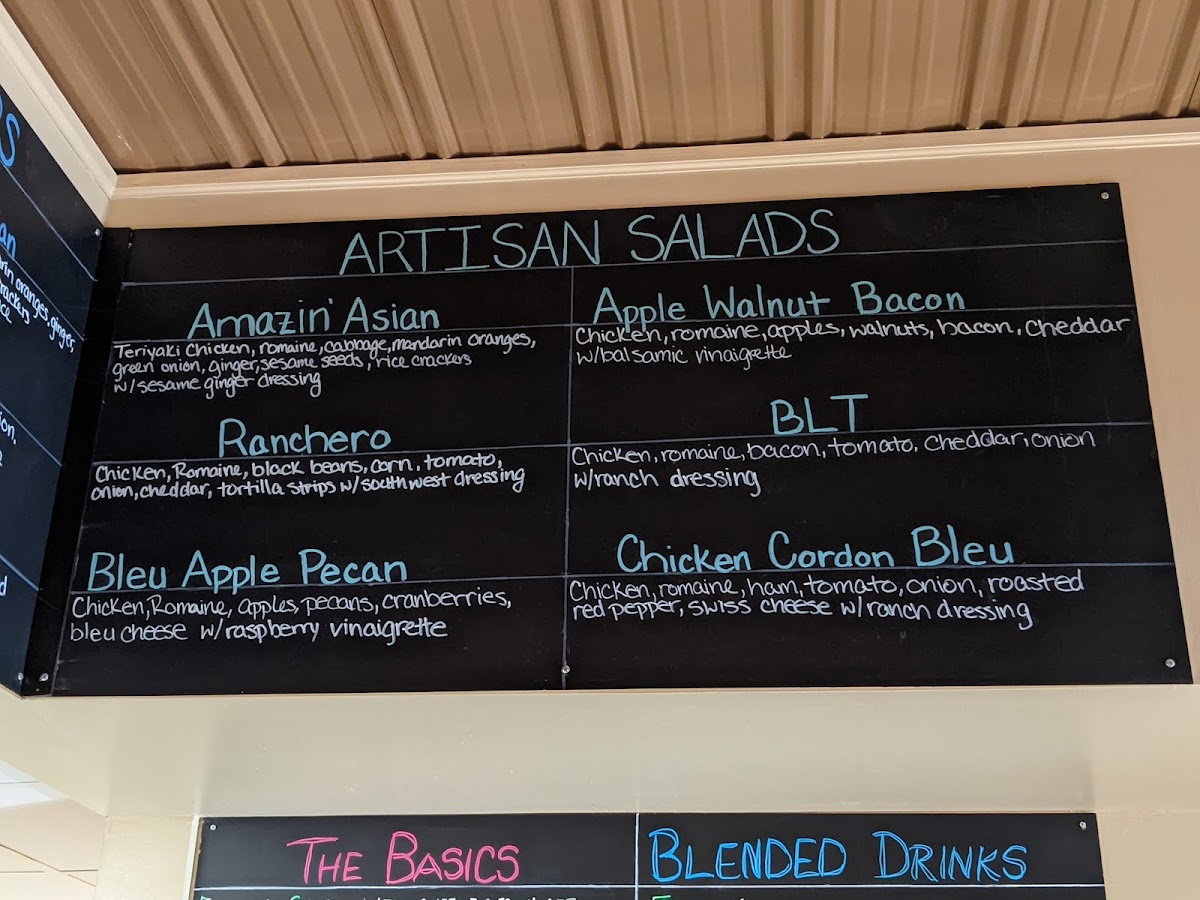 ARTISAN SALADS
Amazin' Asian
Teriyaki Chicken, romaine, cabbage, mandarin oranges,
green onion, ginger, sesame seeds, rice crackers
w/sesame ginger dressing
Ranchero
Chicken, Romaine, black beans, corn, tomato,
onion, cheddar, tortilla strips w/southwest dressing
Bleu Apple Pecan
Chicken, Romaine, apples, pecans, cranberries,
bleu cheese w/raspberry vinaigrette
Apple Walnut Bacon
Chicken, romaine, apples, walnuts, bacon, cheddar
w/balsamic vinaigrette
BLT
Chicken, romaine, bacon, tomato, cheddar, onion
w/ranch dressing
Chicken Cordon Bleu
Chicken, romaine, ham, tomato, onion, roasted
red pepper, swiss cheese w/ranch dressing
oranges, ginger,
THE BASICS
BLENDED DRINKS